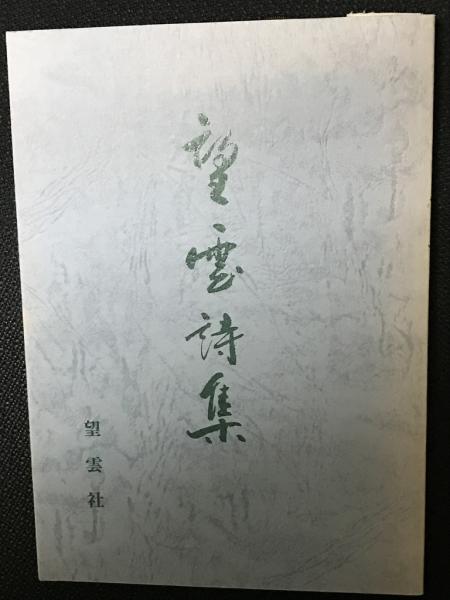 望雲詩集
望雲社